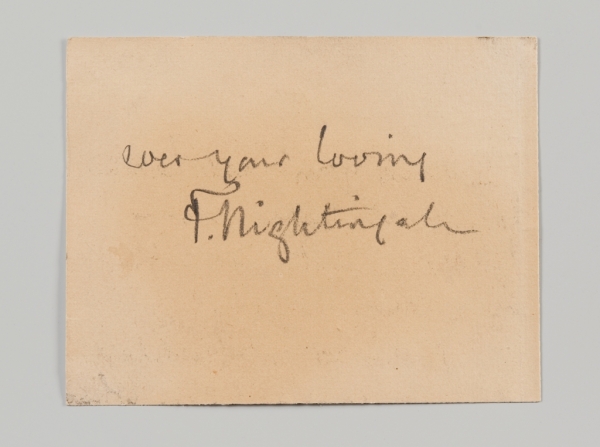 ever your loving
F. Nightingale